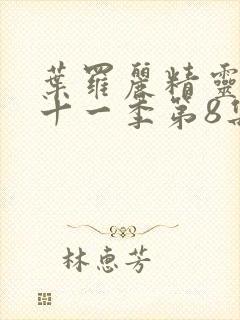 葉羅麗精靈
十一季第8集
林惠芳